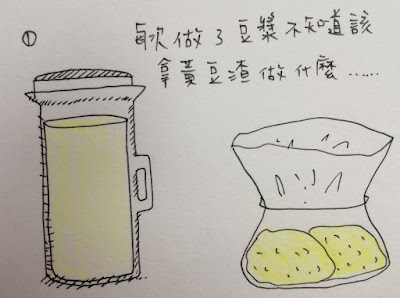 ①
每次做了豆漿不知道該
拿黃豆渣做什麼……